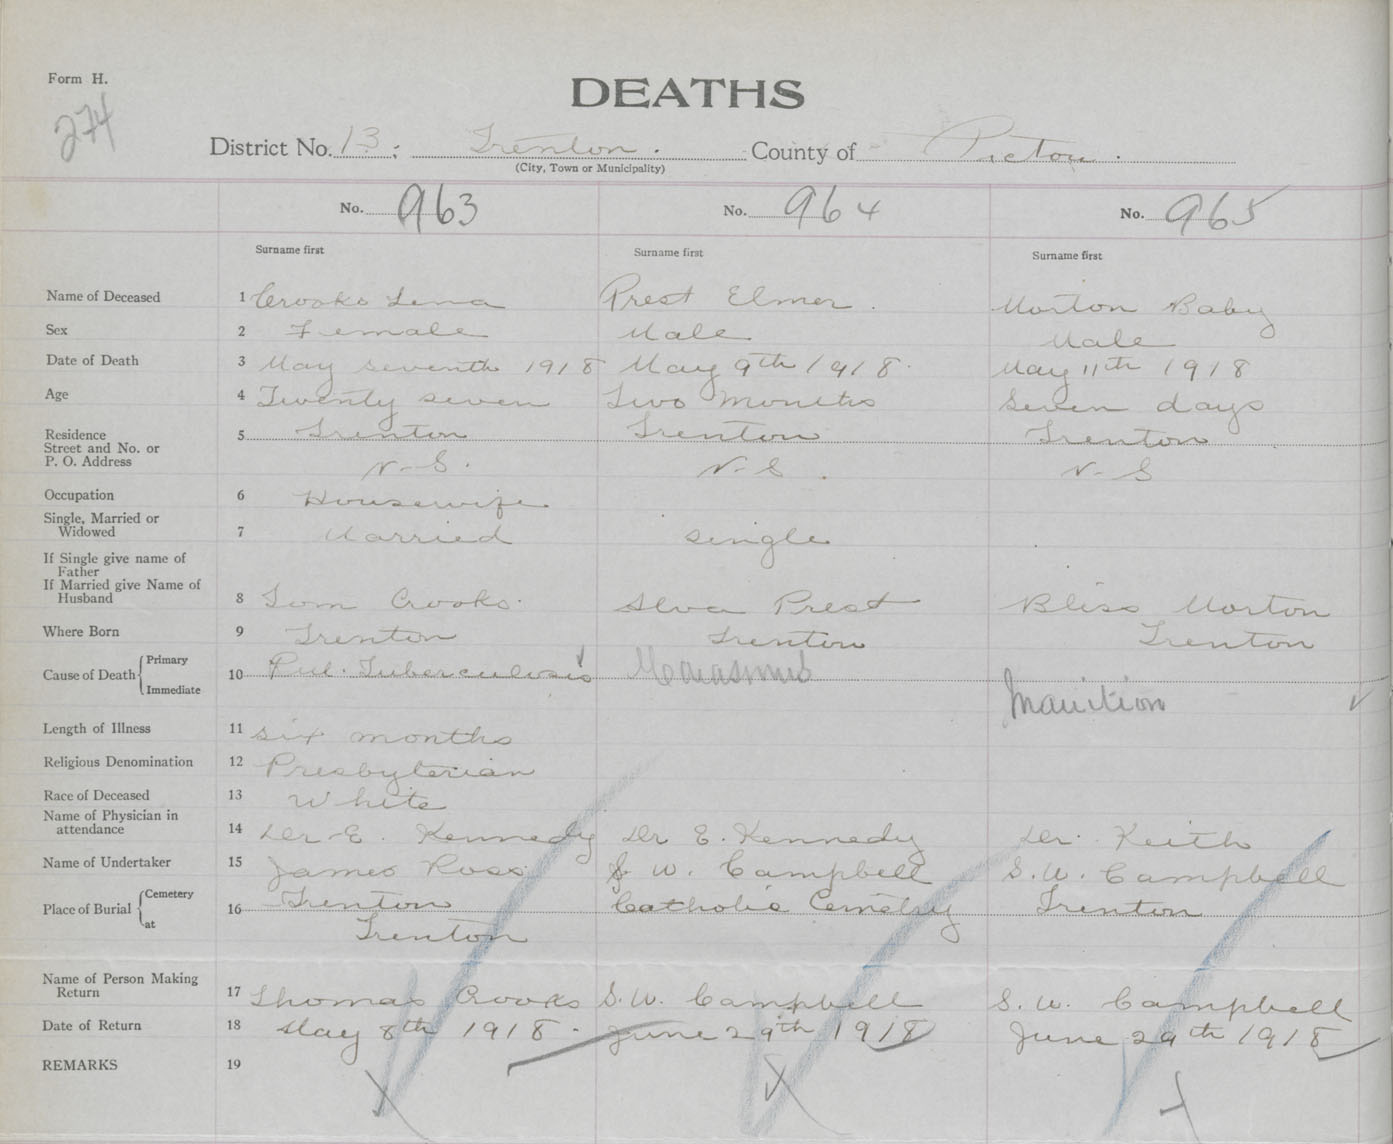 Form H.
274
DEATHS
District No. 13 ; Trenton . County of Pictou .
(City, Town or Municipality)
No. 963 No. 964 No. 965
Surname first Surname first Surname first
Name of Deceased 1 Crooks Lena Prest Elmer . Morton Baby
Sex 2 Female Male Male
Date of Death 3 May seventh 1918 May 9th 1918. May 11th 1918
Age 4 Twenty seven Two Months Seven days
Residence 5 Trenton Trenton Trenton
Street and No. or
P. O. Address N-S. N-S . N-S
Occupation 6 Housewife
Single, Married or
Widowed 7 Married Single
If Single give name of
Father
If Married give Name of
Husband 8 Tom Crooks. Alva Prest Bliss Morton
Where Born 9 Trenton Trenton Trenton
Cause of Death { Primary 10 Pul. Tuberculosis Marasmus
Immediate Inanition
Length of Illness 11 six months
Religious Denomination 12 Presbyterian
Race of Deceased 13 White
Name of Physician in
attendance 14 Dr E. Kennedy Dr E. Kennedy Dr. Keith
Name of Undertaker 15 James Ross S W. Campbell S. W. Campbell
Place of Burial { Cemetery 16 Trenton Catholic Cemetry Trenton
at Trenton
Name of Person Making
Return 17 Thomas Crooks S. W. Campbell S. W. Campbell
Date of Return 18 May 8th 1918. June 29th 1918 June 29th 1918
REMARKS 19